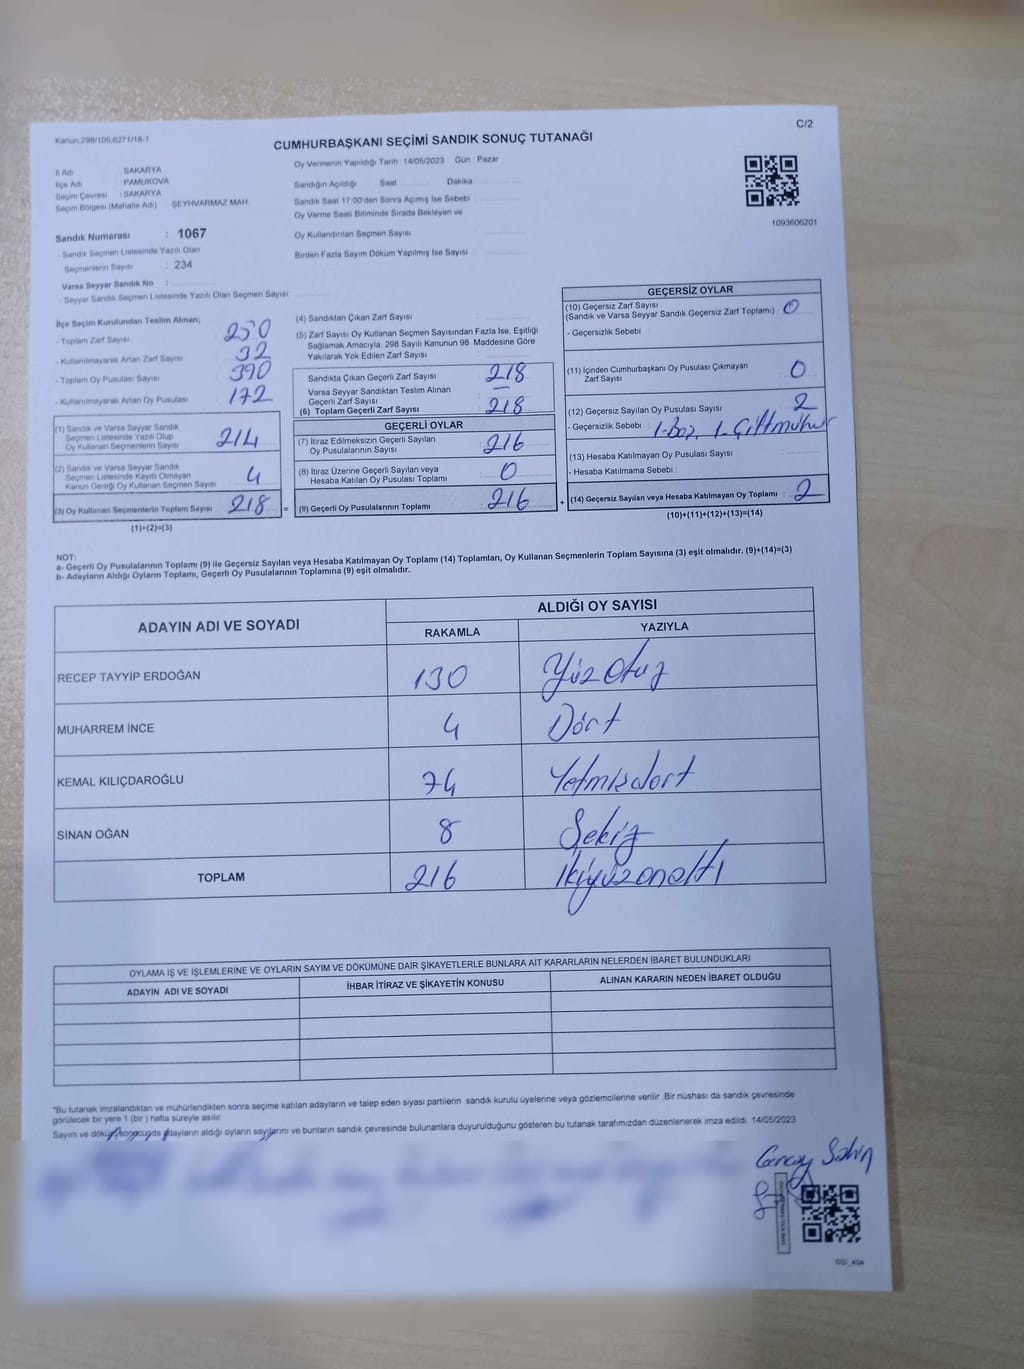 Kanun:298/105.6271/16-1
C/2
CUMHURBAŞKANI SEÇİMİ SANDIK SONUÇ TUTANAĞI
İl Adı : SAKARYA
İlçe Adı : PAMUKOVA
Seçim Çevresi : SAKARYA
Seçim Bölgesi (Mahalle Adı) : ŞEYHVARMAZ MAH.
Sandık Numarası : 1067
- Sandık Seçmen Listesinde Yazılı Olan
Seçmenlerin Sayısı : 234
Varsa Seyyar Sandık No :
- Seyyar Sandık Seçmen Listesinde Yazılı Olan Seçmen Sayısı:
Oy Vermenin Yapıldığı Tarih : 14/05/2023 Gün : Pazar
Sandığın Açıldığı Saat Dakika
Sandık Saat 17:00'den Sonra Açımış İse Sebebi
Oy Verme Saati Bitiminde Sırada Bekleyen ve
Oy Kullandırılan Seçmen Sayısı
Birden Fazla Sayım Döküm Yapılmış İse Sayısı
1093606201
İlçe Seçim Kurulundan Teslim Alınan;
- Toplam Zarf Sayısı : 250
- Kullanılmayarak Artan Zarf Sayısı : 32
- Toplam Oy Pusulası Sayısı : 390
- Kullanılmayarak Artan Oy Pusulası : 172
(1) Sandık ve Varsa Seyyar Sandık
Seçmen Listesinde Yazılı Olup
Oy Kullanan Seçmenlerin Sayısı : 214
(2) Sandık ve Varsa Seyyar Sandık
Seçmen Listesinde Kayıtlı Olmayan
Kanun Gereği Oy Kullanan Seçmen Sayısı : 4
(3) Oy Kullanan Seçmenlerin Toplam Sayısı : 218 =
(1)+(2)=(3)
(4) Sandıktan Çıkan Zarf Sayısı
(5) Zarf Sayısı Oy Kullanan Seçmen Sayısından Fazla İse, Eşitliği
Sağlamak Amacıyla, 298 Sayılı Kanunun 98. Maddesine Göre
Yakılarak Yok Edilen Zarf Sayısı
Sandıkta Çıkan Geçerli Zarf Sayısı : 218
Varsa Seyyar Sandıktan Teslim Alınan
Geçerli Zarf Sayısı : —
(6) Toplam Geçerli Zarf Sayısı : 218
GEÇERLİ OYLAR
(7) İtiraz Edilmeksizin Geçerli Sayılan
Oy Pusulalarının Sayısı : 216
(8) İtiraz Üzerine Geçerli Sayılan veya
Hesaba Katılan Oy Pusulası Toplamı : 0
(9) Geçerli Oy Pusulalarının Toplamı : 216 +
GEÇERSİZ OYLAR
(10) Geçersiz Zarf Sayısı
(Sandık ve Varsa Seyyar Sandık Geçersiz Zarf Toplamı) : 0
- Geçersizlik Sebebi :
(11) İçinden Cumhurbaşkanı Oy Pusulası Çıkmayan
Zarf Sayısı : 0
(12) Geçersiz Sayılan Oy Pusulası Sayısı : 2
- Geçersizlik Sebebi : 1-Boş, 1-Çift mühür
(13) Hesaba Katılmayan Oy Pusulası Sayısı :
- Hesaba Katılmama Sebebi :
(14) Geçersiz Sayılan veya Hesaba Katılmayan Oy Toplamı : 2
(10)+(11)+(12)+(13)=(14)
NOT:
a- Geçerli Oy Pusulalarının Toplamı (9) ile Geçersiz Sayılan veya Hesaba Katılmayan Oy Toplamı (14) Toplamları, Oy Kullanan Seçmenlerin Toplam Sayısına (3) eşit olmalıdır. (9)+(14)=(3)
b- Adayların Aldığı Oyların Toplamı, Geçerli Oy Pusulalarının Toplamına (9) eşit olmalıdır.
ADAYIN ADI VE SOYADI
ALDIĞI OY SAYISI
RAKAMLA YAZIYLA
RECEP TAYYİP ERDOĞAN 130 Yüz Otuz
MUHARREM İNCE 4 Dört
KEMAL KILIÇDAROĞLU 74 Yetmişdört
SİNAN OĞAN 8 Sekiz
TOPLAM 216 İkiyüzonaltı
OYLAMA İŞ VE İŞLEMLERİNE VE OYLARIN SAYIM VE DÖKÜMÜNE DAİR ŞİKAYETLERLE BUNLARA AİT KARARLARIN NELERDEN İBARET BULUNDUKLARI
ADAYIN ADI VE SOYADI İHBAR İTİRAZ VE ŞİKAYETİN KONUSU ALINAN KARARIN NEDEN İBARET OLDUĞU
*Bu tutanak imzalandıktan ve mühürlendikten sonra seçime katılan adayların ve talep eden siyasi partilerin sandık kurulu üyelerine veya gözlemcilerine verilir. Bir nüshası da sandık çevresinde
görülecek bir yere 1 (bir ) hafta süreyle asılır.
Sayım ve döküm sonucunda adayların aldığı oyların sayılarını ve bunların sandık çevresinde bulunanlara duyurulduğunu gösteren bu tutanak tarafımızdan düzenlenerek imza edildi. 14/05/2023